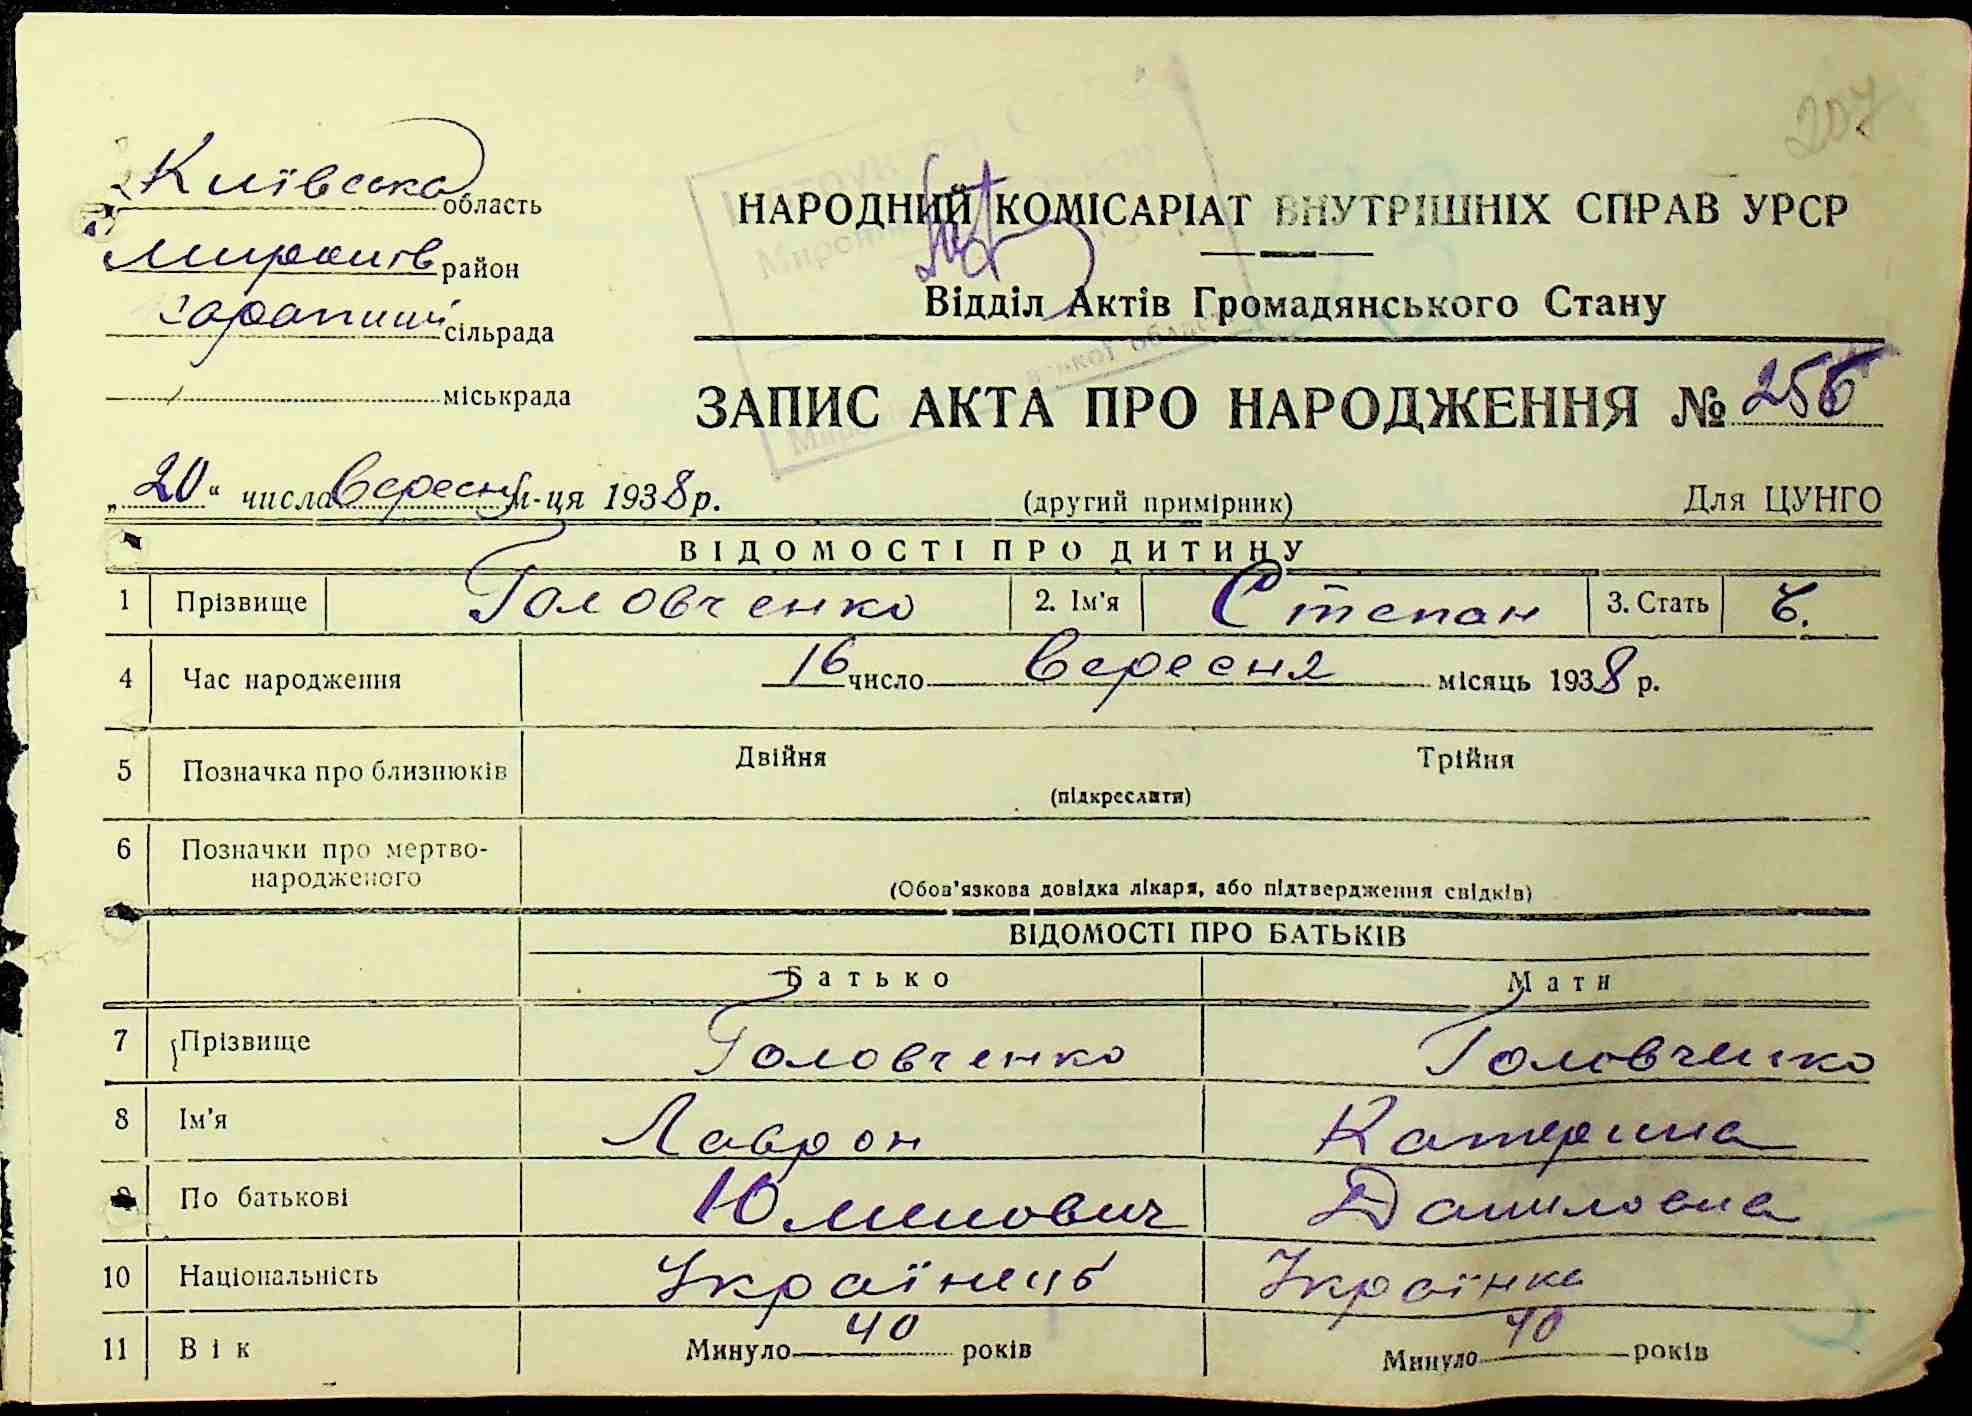 207
Київська область
Миронів район
Карапиші сільрада
міськрада
НАРОДНИЙ КОМІСАРІАТ ВНУТРІШНІХ СПРАВ УРСР
Відділ Актів Громадянського Стану
ЗАПИС АКТА ПРО НАРОДЖЕННЯ № 256
„20“ числа вересня м-ця 1938 р. (другий примірник) Для ЦУНГО
ВІДОМОСТІ ПРО ДИТИНУ
1 Прізвище Головченко 2. Ім'я Степан 3. Стать Ч.
4 Час народження 16 число Вересня місяць 1938 р.
5 Позначка про близнюків Двійня Трійня
(підкреслити)
6 Позначки про мертво-
народженого
(Обов'язкова довідка лікаря, або підтвердження свідків)
ВІДОМОСТІ ПРО БАТЬКІВ
Батько Мати
7 Прізвище Головченко Головченко
8 Ім'я Лаврон Катерина
9 По батькові Юхимович Даниловна
10 Національність Українець Українка
11 Вік Минуло 40 років Минуло 40 років